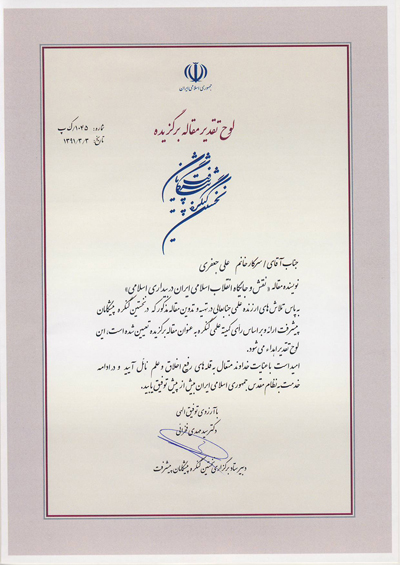 جمهوری اسلامی ایران
لوح تقدیر مقاله برگزیده
شماره: ۱۰۴۵/ک پ
تاریخ: ۱۳۹۱/۳/۳
نخستین کنگره پیشگامان پیشرفت
جناب آقای / سرکار خانم علی جعفری
نویسنده مقاله «نقش و جایگاه انقلاب اسلامی ایران در بیداری اسلامی»
به پاس تلاش های ارزنده علمی جنابعالی در تهیه و تدوین مقاله مذکور که در نخستین کنگره پیشگامان
پیشرفت ارائه و بر اساس رأی کمیته علمی کنگره به عنوان مقاله برگزیده تعیین شده است، این
لوح تقدیر اهداء می شود.
امید است با عنایت خداوند متعال به قله های رفیع اخلاق و علم نائل آیید و در ادامه
خدمت به نظام مقدس جمهوری اسلامی ایران بیش از پیش توفیق یابید.
با آرزوی توفیق الهی
دکتر سید مهدی
دبیر ستاد برگزاری نخستین کنگره پیشگامان پیشرفت